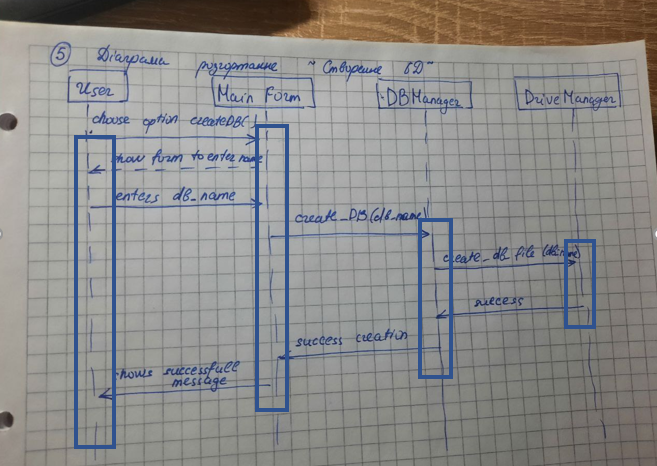 5 Діаграма розгортання "Створення БД"
User
Main Form
:DBManager
DriveManager
choose option createDB()
show form to enter name
enters db_name
create_DB(db_name)
create_db_file (db_name)
success
success creation
shows successfull
message